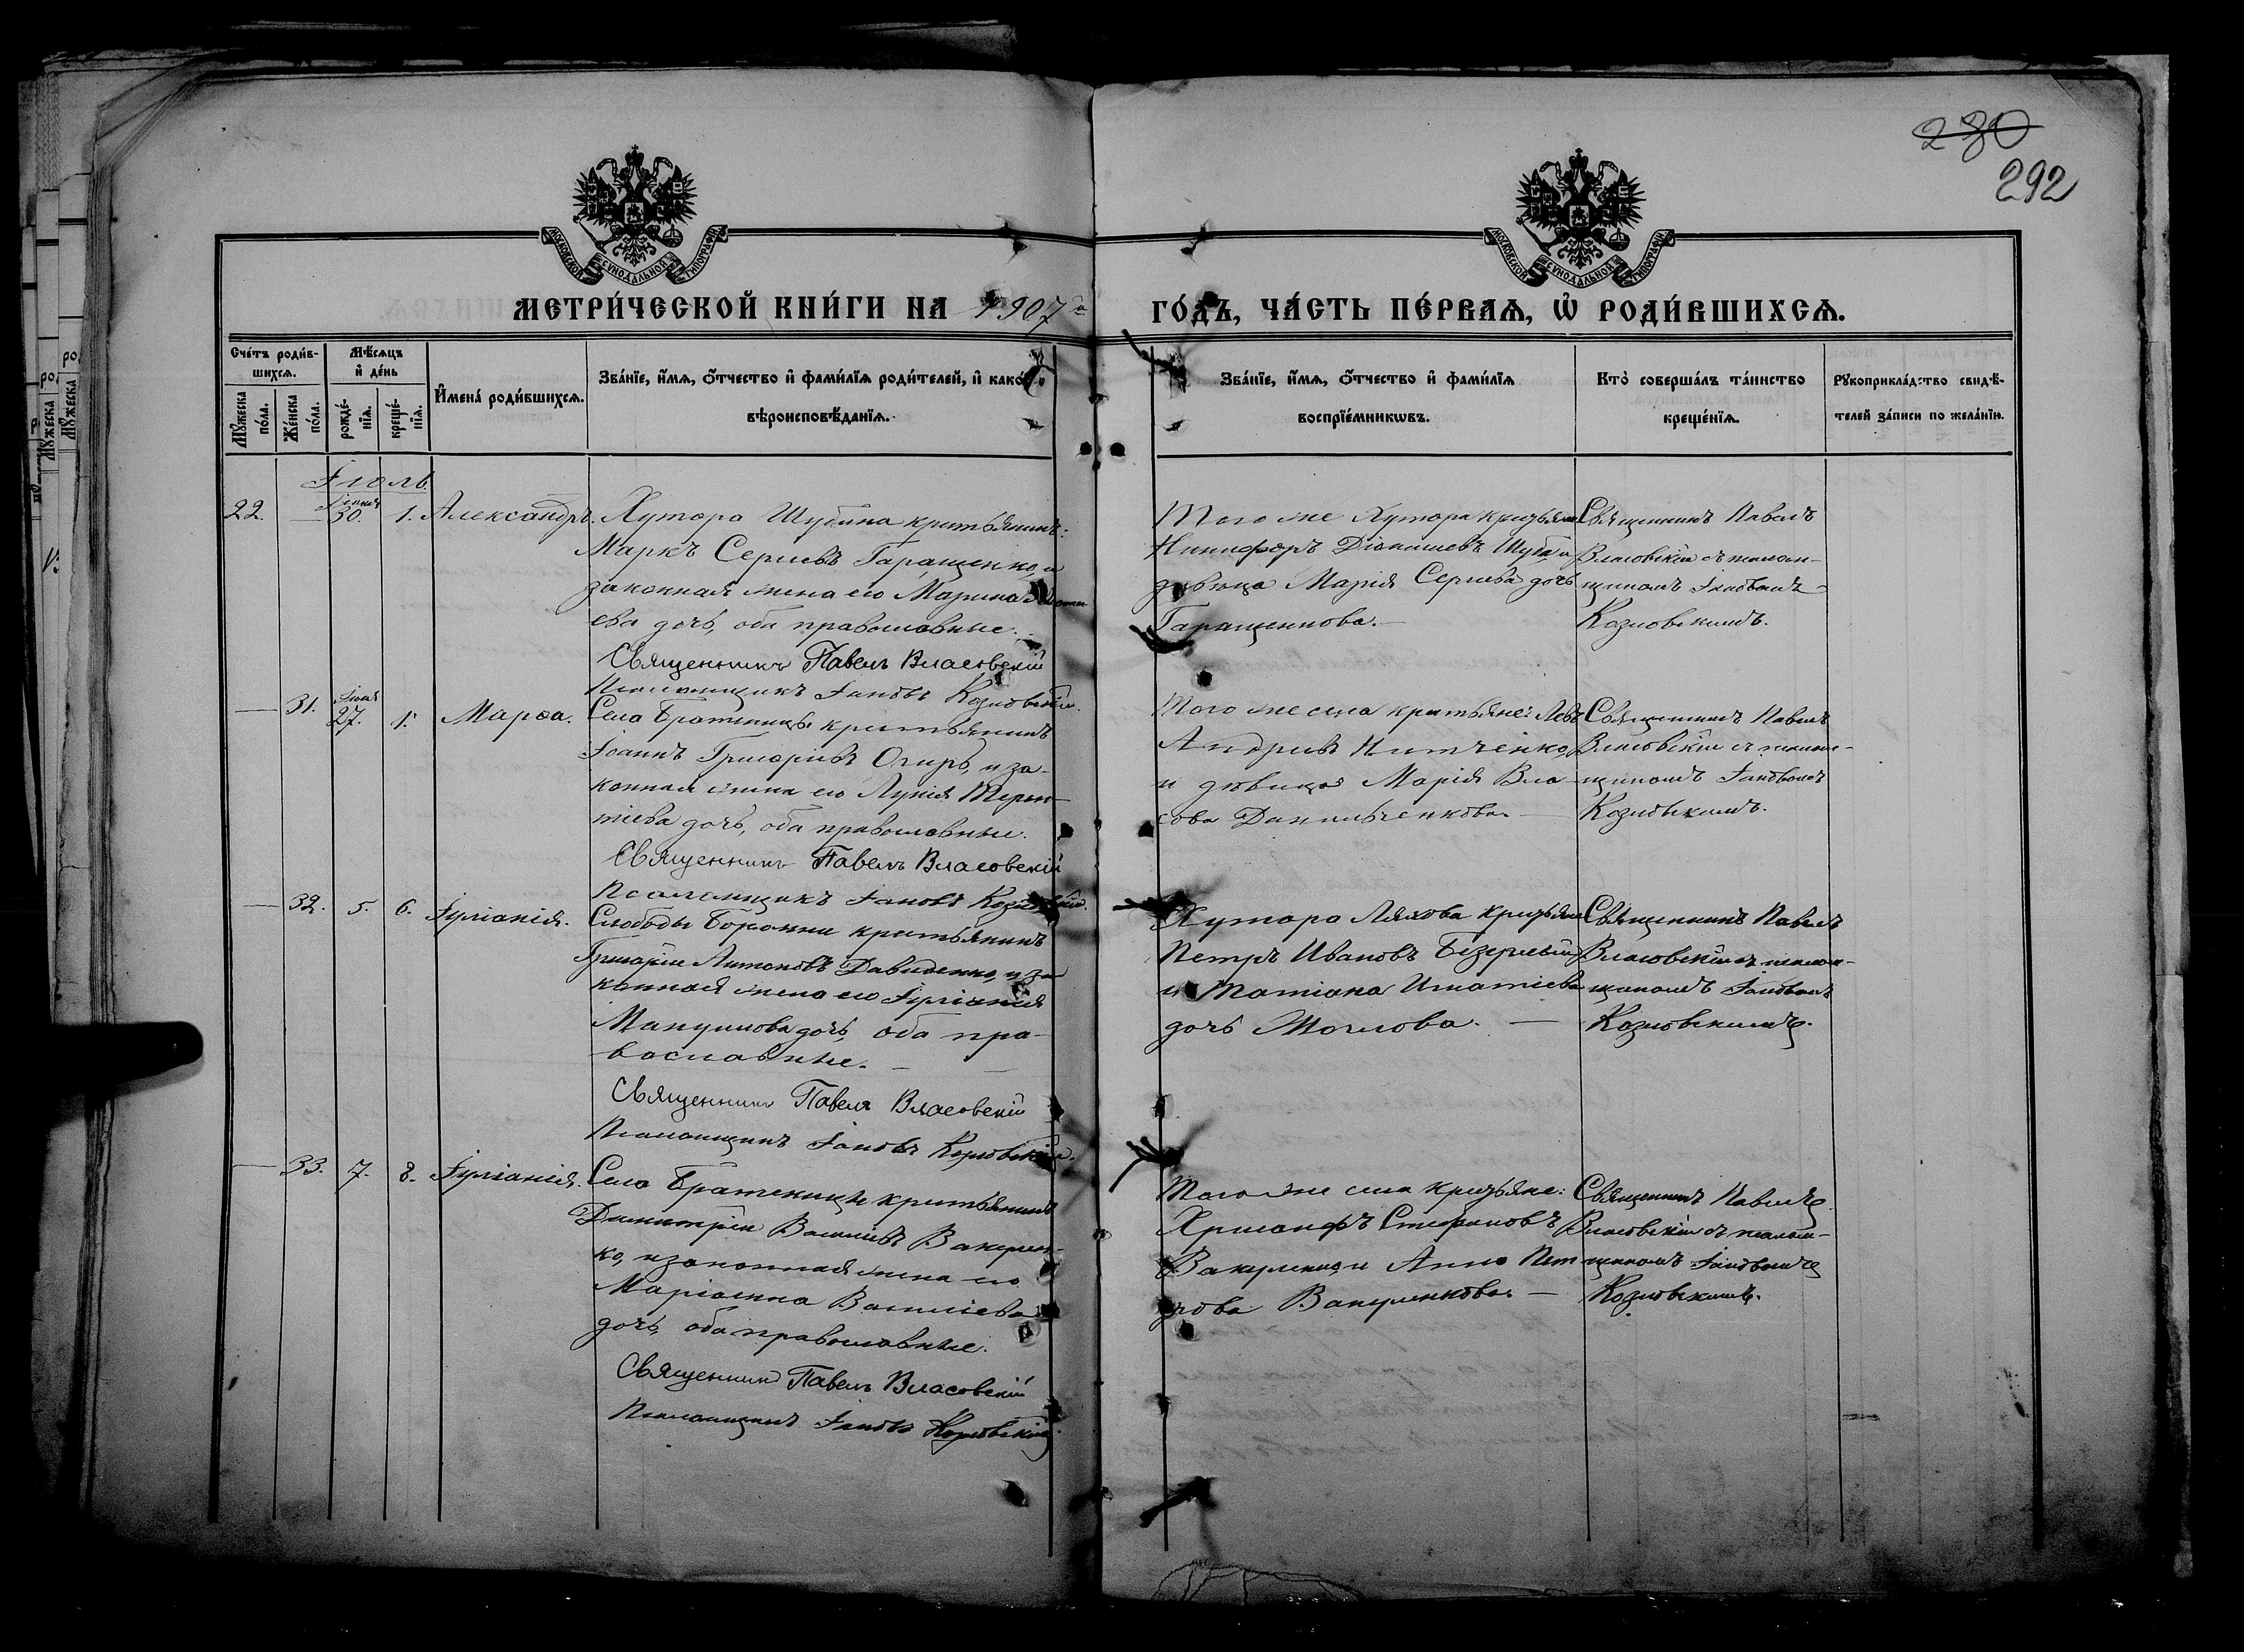 280
292
МОСКОВСКОЙ СѴНОДАЛЬНОЙ ТИПОГРАФІИ
МОСКОВСКОЙ СѴНОДАЛЬНОЙ ТИПОГРАФІИ
МЕТРИ́ЧЕСКОЙ КНИ́ГИ НА 1907 ГО́ДЪ, ЧА́СТЬ ПЕ́РВАѦ, Ѡ҆ РОДИ́ВШИХСѦ.
Сче́тъ роди́в-
шихсѧ.
Мꙋжеска по́ла.
Же́нска по́ла.
Мѣ́сѧцъ и҆ де́нь
рожде́-нїѧ.
креще́-нїѧ.
И҆мена̀ роди́вшихсѧ.
Зва́нїе, и҆́мѧ, ѻ҆́тчество и҆ фами́лїѧ роди́телей, и҆ како́гѡ
вѣроисповѣ́данїѧ.
Зва́нїе, и҆́мѧ, ѻ҆́тчество и҆ фами́лїѧ
воспрїе́мникѡвъ.
Кто̀ соверша́лъ та́инство
креще́нїѧ.
Рꙋкоприкла́дство свидѣ́-
телей за́писи по жела́нїю.
Іюль.
22. Іюня 30. 1. Александръ. Хутора Шубина крестьянинъ:
Маркъ Сергіевъ Гаращенко, и
законная жена его Марина
ева дочь, оба православные.
Священникъ Павелъ Власовскій
Псаломщикъ Іаковъ Козловскій.
Того же Хутора
Никифоръ Діонисіевъ Шуба и
дѣвица Марія Сергіева дочь
Гаращенкова.
Священникъ Павелъ
Власовскій съ псалом-
щикомъ Іаковомъ
Козловскимъ.
31. Іюня 27. 1. Марѳа. Села Братеницы крестьянинъ
Іоаннъ Григоріевъ Огирь, и за-
конная жена его Лукія Терен-
тіева дочь, оба православные.
Священникъ Павелъ Власовскій
Псаломщикъ Іаковъ Козловскій.
Того же села крестьяне: Левъ
Андреевъ Нитченко,
и дѣвица Марія Вла-
сова Данильченкова.
Священникъ Павелъ
Власовскій съ псалом-
щикомъ Іаковомъ
Козловскимъ.
32. 5. 6. Іуліанія. Слободы Боромли крестьянинъ
Григорій Антоновъ Давиденко, и за-
конная жена его Іуліанія
дочь, оба пра-
вославные.
Священникъ Павелъ Власовскій
Псаломщикъ Іаковъ Козловскій.
Хутора Ляхова
Петръ Ивановъ
и Татіана Игнатіева
дочь
Священникъ Павелъ
Власовскій съ псалом-
щикомъ Іаковомъ
Козловскимъ.
33. 7. 8. Іуліанія. Села Братеницы крестьянинъ
Димитрій Василіевъ Вакулен-
ко, и законная жена его
Маріанна Василіева
дочь, оба православные.
Священникъ Павелъ Власовскій
Псаломщикъ Іаковъ Козловскій.
Того же села
Хрисанфъ Стефановъ
Вакуленко, и Анна Пет-
рова Вакуленкова.
Священникъ Павелъ
Власовскій съ псалом-
щикомъ Іаковомъ
Козловскимъ.